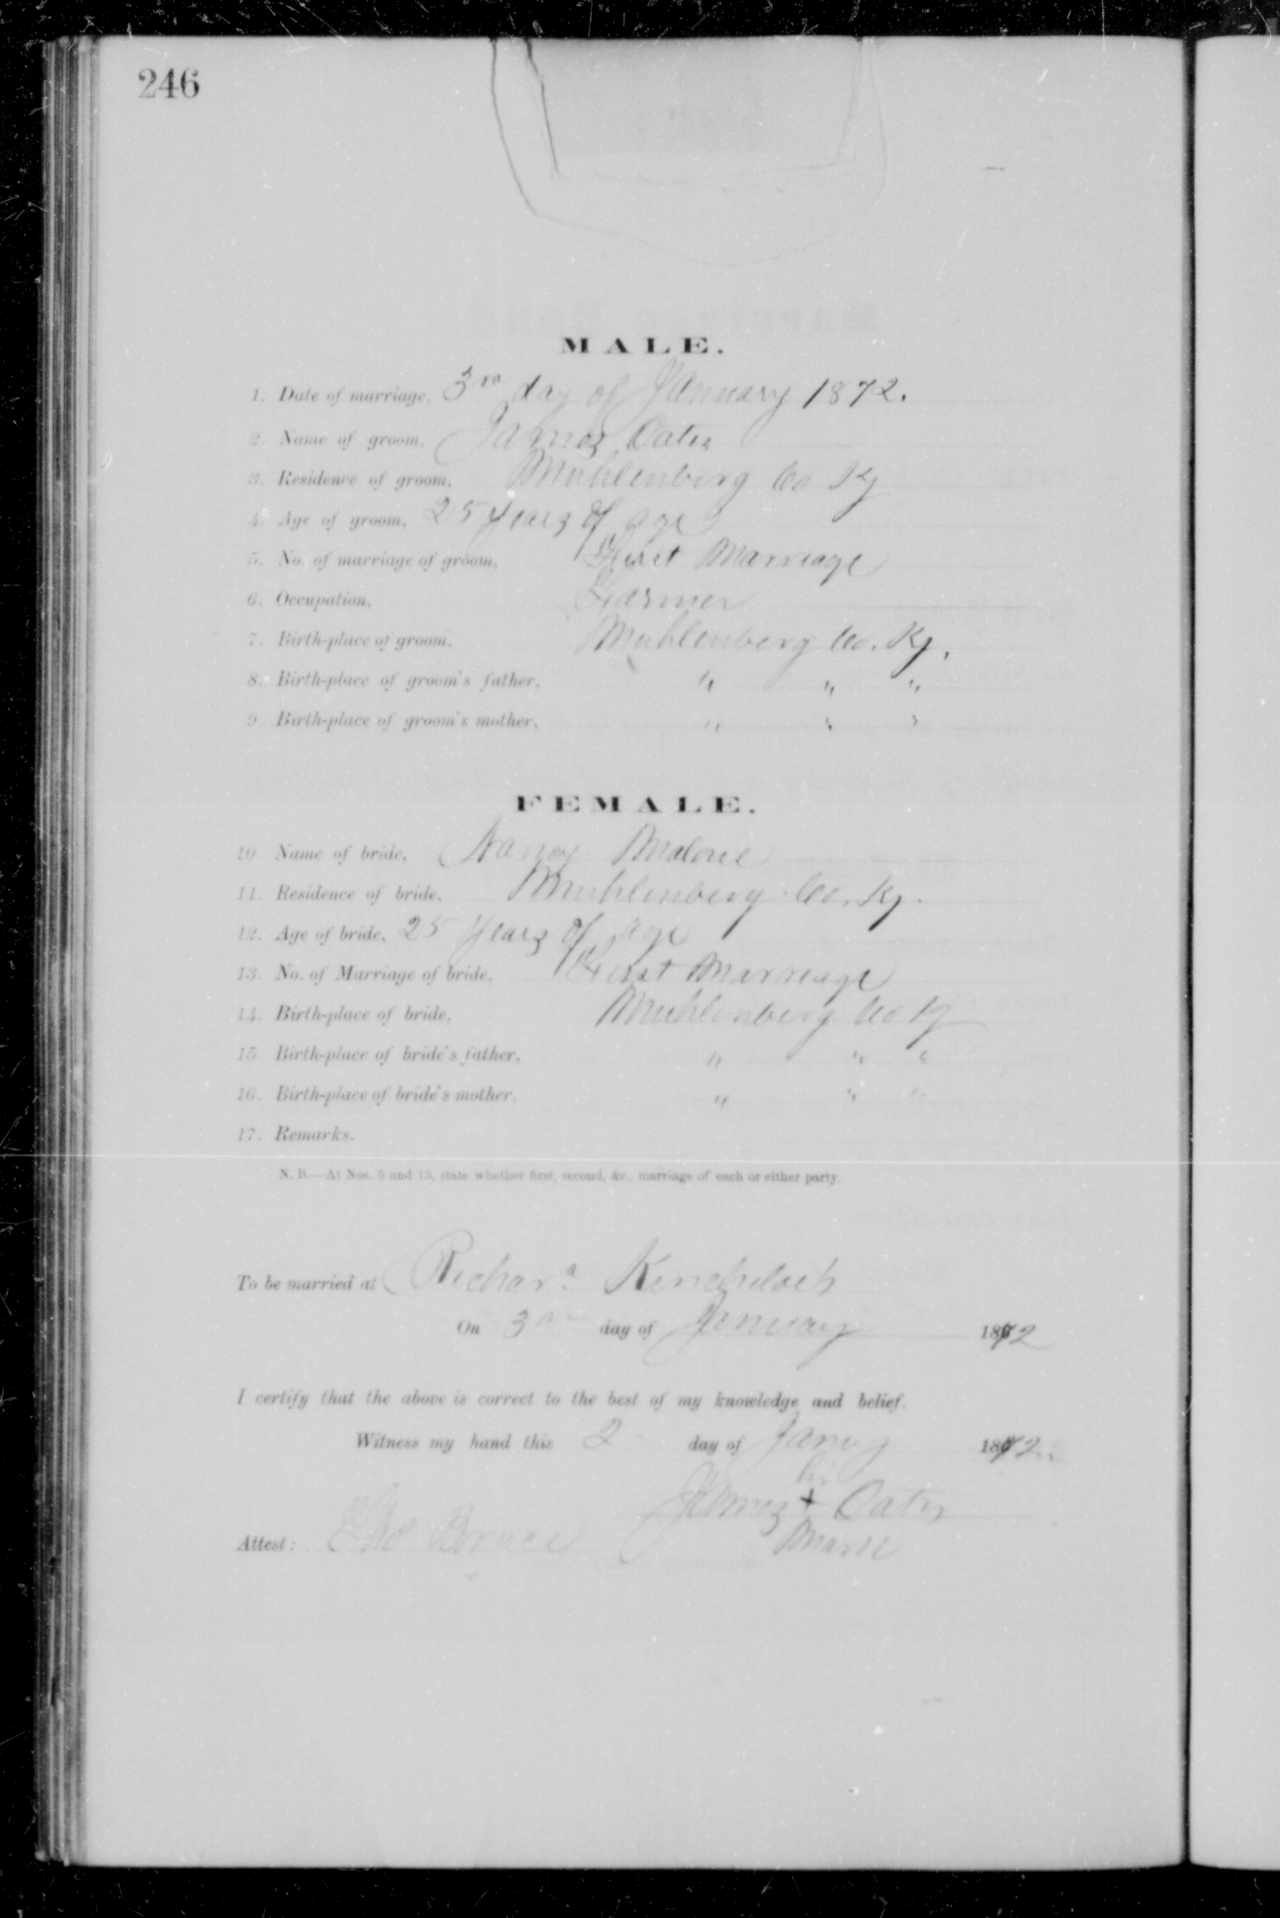 246
MALE.
1. Date of marriage, 3rd day of January 1872.
2. Name of groom, James Oates
3. Residence of groom, Muhlenberg Co Ky
4. Age of groom, 25 years of age
5. No. of marriage of groom, First Marriage
6. Occupation, Farmer
7. Birth-place of groom, Muhlenberg Co. Ky.
8. Birth-place of groom's father, " " "
9. Birth-place of groom's mother, " " "
FEMALE.
10. Name of bride, Nancy Malone
11. Residence of bride, Muhlenberg Co. Ky.
12. Age of bride, 25 years of age
13. No. of Marriage of bride, First Marriage
14. Birth-place of bride, Muhlenberg Co Ky
15. Birth-place of bride's father, " " "
16. Birth-place of bride's mother, " " "
17. Remarks.
N. B.—At Nos. 5 and 13, state whether first, second, &c., marriage of each or either party.
To be married at Richard Kincheloes
On 3rd day of January 1872
I certify that the above is correct to the best of my knowledge and belief.
Witness my hand this 2 day of Jany 1872.
his
James + Oates
Attest: Tho Bruce mark